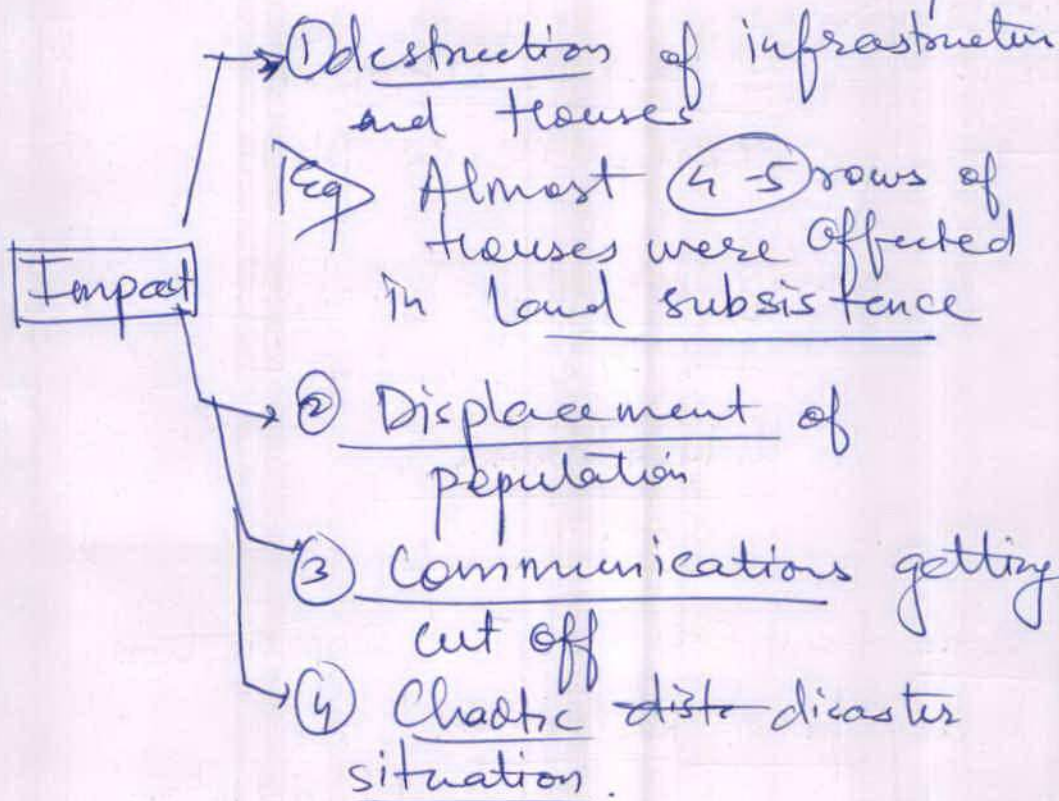 ① destruction of infrastructur
and Houses
Eg Almost 4-5 rows of
Houses were affected
in land subsistence
Impact
② Displacement of
population
③ Communications getting
cut off
④ Chaotic distr dicaster
situation.